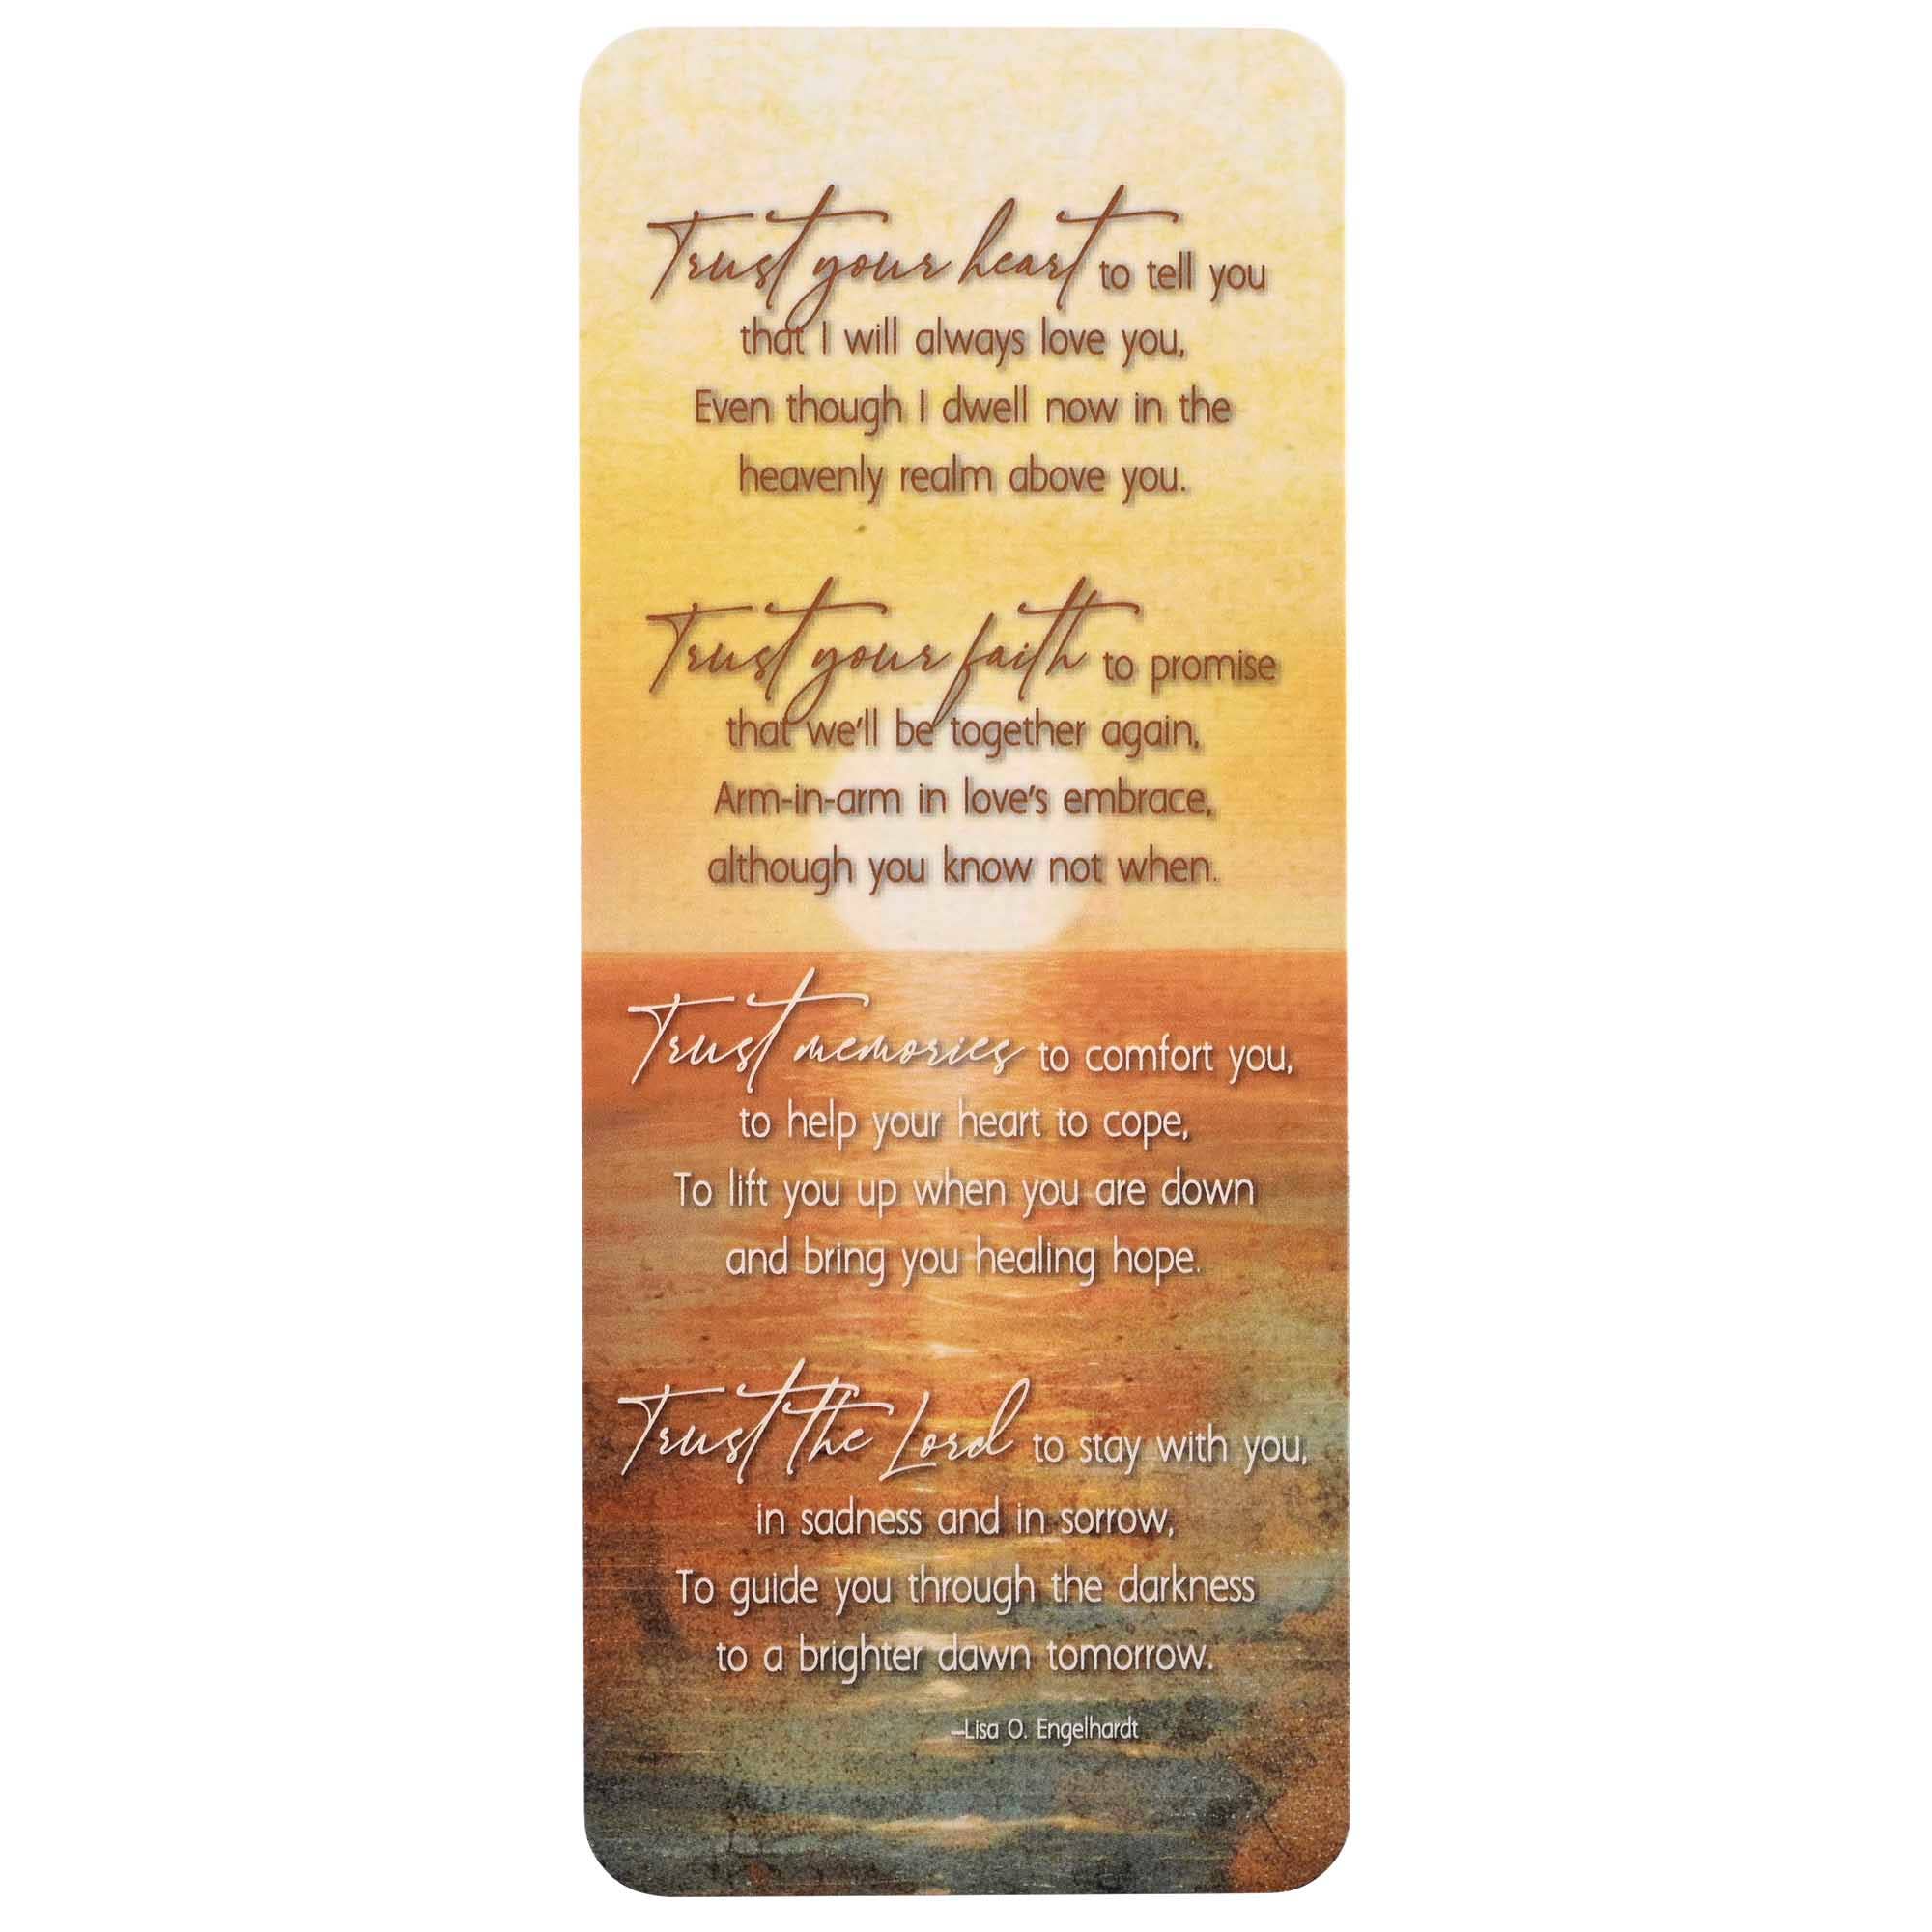 Trust your heart to tell you
that I will always love you,
Even though I dwell now in the
heavenly realm above you.
Trust your faith to promise
that we'll be together again,
Arm-in-arm in love's embrace,
although you know not when.
Trust memories to comfort you,
to help your heart to cope,
To lift you up when you are down
and bring you healing hope.
Trust the Lord to stay with you,
in sadness and in sorrow,
To guide you through the darkness
to a brighter dawn tomorrow.
–Lisa O. Engelhardt